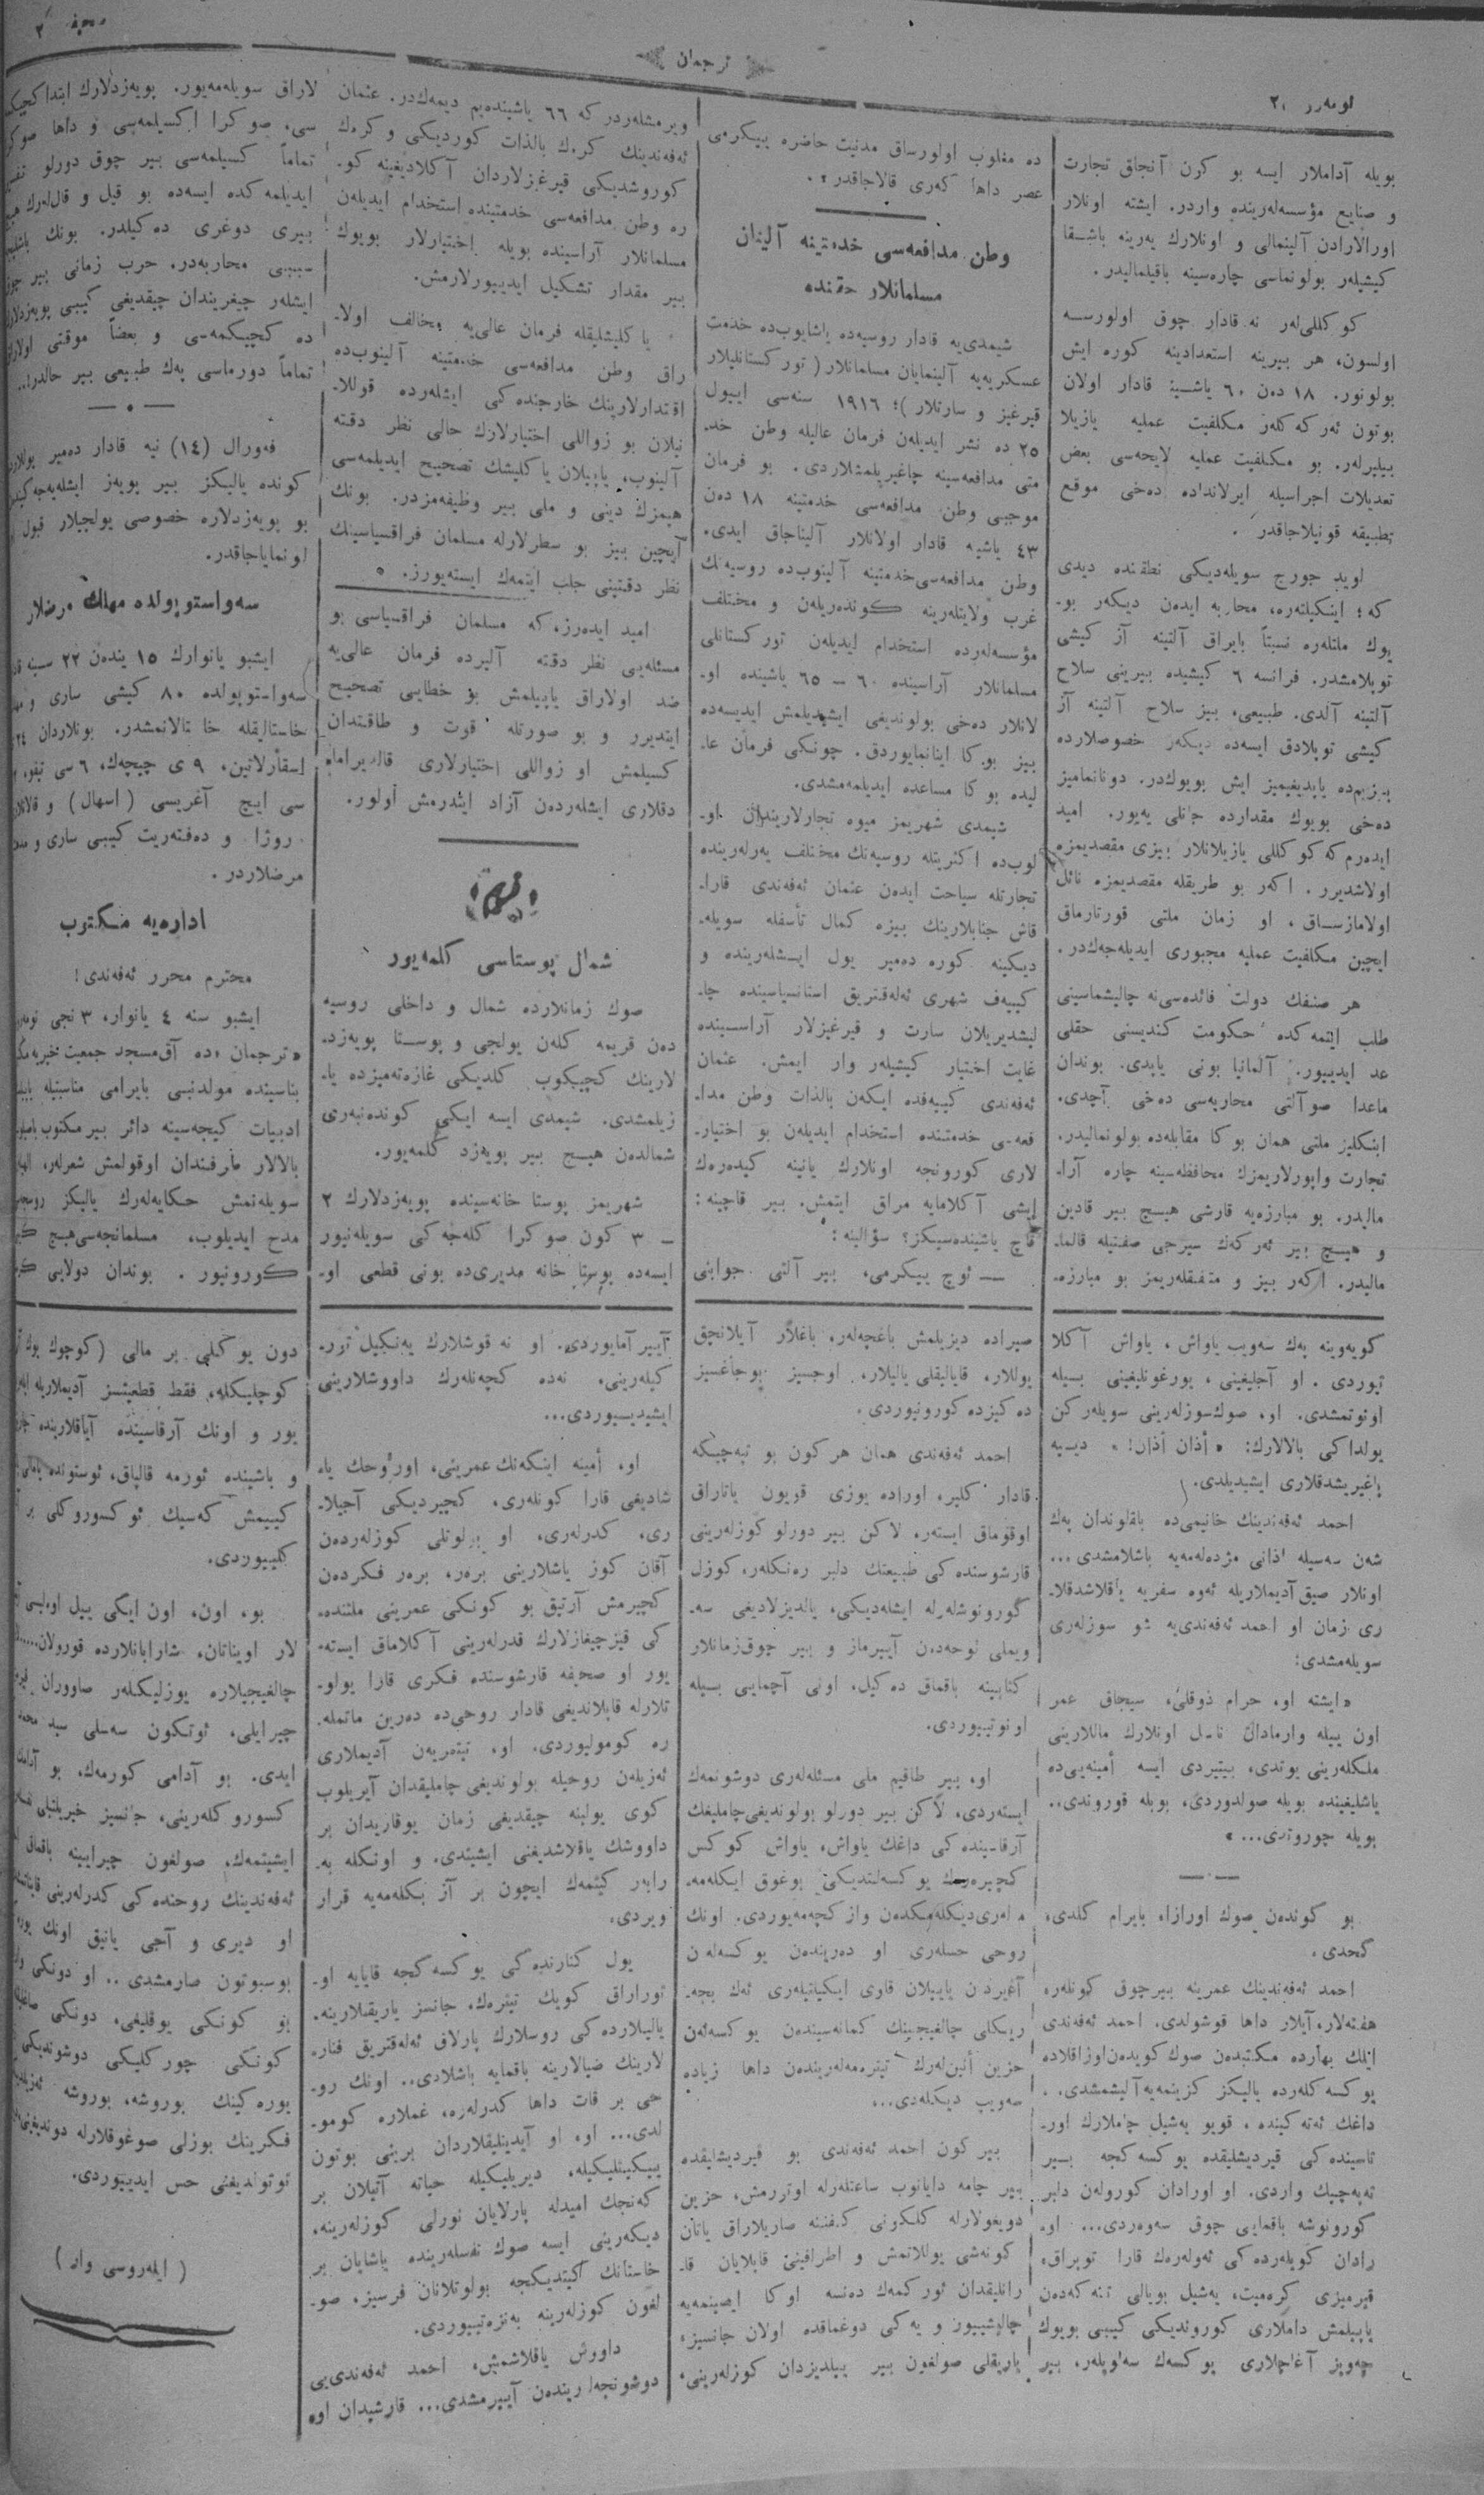 نومەرر ٢٠
ترجمان
صحیفە ٢
بویله آداملار ایسه بو کرن آنجاق تجارت
و صنایع مؤسسه‌لەرینده واردر. ایشته اونلار
اورالارادن آلینمالی و اونلارك یەرینه باشقا
کیشیلەر بولونماسی چاره‌سینه باقیلمالیدر.
کوکللی‌لەر نه قادار چوق اولورسه
اولسون، هر بیرینه استعدادینه کوره ایش
بولونور. ١٨ دەن ٦٠ یاشینه قادار اولان
بوتون ئەرکه‌کلەر مکلفیت عملیه یازیلا
بیلیرلەر. بو مکلفیت عملیه لایحه‌سی بعض
تعدیلات اجراسیله ایرلانداده دەخی موقع
تطبیقه قونیلاجاقدر.
لوید جورج سویله‌دیکی نطقنده دیدی
که؛ اینکیلتەره، محاربه ایدەن دیکەر بو-
یوك ملتلەره نسبتاً بایراق آلتینه آز کیشی
توپلامشدر. فرانسه ٦ کیشیده بیرینی سلاح
آلتینه آلدی. طبیعی، بیز سلاح آلتینه آز
کیشی توپلادق ایسه‌ده دیکەر خصوصلارده
بیزیم‌ده یاپدیغیمیز ایش بویوك‌در. دونانمامیز
دەخی بویوك مقدارده جانلی یەیور. امید
ایدەرم که کوکللی یازیلانلار بیزی مقصدیمزه
اولاشدیرر. اکەر بو طریقله مقصدیمزه نائل
اولامازساق، او زمان ملتی قورتارماق
ایچین مکلفیت عملیه مجبوری ایدیله‌جەك‌در.
هر صنفك دولت فائده‌سی‌نه چالیشماسینی
طلب ایتمه‌کده حکومت کندیسنی حقلی
عد ایدییور. آلمانیا بونی یاپدی. بوندان
ماعدا صو آلتی محاربه‌سی دەخی آچدی.
اینکلیز ملتی همان بوکا مقابله‌ده بولونمالیدر.
تجارت واپورلاریمزك محافظه‌سینه چاره آرا-
مالیدر. بو مبارزه‌یه قارشی هیچ بیر قادین
و هیچ بیر ئەرکەك سیرجی صفتیله قالما-
مالیدر. اکەر بیز و متفقلەریمز بو مبارزه-
ده مغلوب اولورساق مدنیت حاضره ییکرمی
عصر داها کەری قالاجاقدر».
وطن مدافعه‌سی خدمتینه آلینان
مسلمانلار حقنده
شیمدی‌یه قادار روسیه‌ده یاشایوب‌ده خدمت
عسکریه‌یه آلینمایان مسلمانلار (تورکستانلیلار
قیرغیز و سارتلار)؛ ١٩١٦ سنه‌سی اییول
٢٥ ده نشر ایدیلەن فرمان عالیله وطن خد-
متی مدافعه‌سینه چاغیریلمشلاردی. بو فرمان
موجبی وطن مدافعه‌سی خدمتینه ١٨ دەن
٤٣ یاشیه قادار اولانلار آلیناجاق ایدی.
وطن مدافعه‌سی خدمتینه آلینوب‌ده روسیه‌نك
غرب ولایتلەرینه کوندەریلەن و مختلف
مؤسسه‌لەرده استخدام ایدیلەن تورکستانلی
مسلمانلار آراسینده ٦٠ — ٦٥ یاشینده او-
لانلار دەخی بولوندیغی ایشیدیلمش ایدیسه‌ده
بیز بوکا اینانمایوردق. چونکی فرمان عا-
لیده بوکا مساعده ایدیلمه‌مشدی.
شیمدی شهریمز میوه تجارلاریندان او-
لوب‌ده اکثریتله روسیه‌نك مختلف یەرلەرینده
تجارتله سیاحت ایدەن عثمان ئەفەندی قارا-
قاش جنابلارینك بیزه کمال تأسفله سویله-
دیکینه کوره دەمیر یول ایشلەرینده و
کییەف شهری ئەلەقتریق استانسیاسینده چا-
لیشدیریلان سارت و قیرغیزلار آراسینده
غایت اختیار کیشیلەر وار ایمش. عثمان
ئەفەندی کییەفده ایکەن بالذات وطن مدا-
فعه‌سی خدمتنده استخدام ایدیلەن بو اختیار-
لاری کورونجه اونلارك یانینه کیدەرەك
ایشی آکلامایه مراق ایتمش. بیر قاچینه:
قاچ یاشینده‌سیکز؟ سؤالینه:
— ئوچ ییکرمی، بیر آلتی جوابنی
ویرمشلەردرکه ٦٦ یاشینده‌یم دیمەك‌در. عثمان
ئەفەندینك کرك بالذات کوردیکی و کرەك
کوروشدیکی قیرغیزلاردان آکلادیغینه کو-
ره وطن مدافعه‌سی خدمتینده استخدام ایدیلەن
مسلمانلار آراسینده بویله اختیارلار بویوك
بیر مقدار تشکیل ایدییورلارمش.
یاکلیشلیقله فرمان عالی‌یه مخالف اولا-
راق وطن مدافعه‌سی خدمتینه آلینوب‌ده
اقتدارلارینك خارجنده‌کی ایشلەرده قوللا-
نیلان بو زواللی اختیارلارك حالی نظر دقته
آلینوب، یاپیلان یاکلیشك تصحیح ایدیلمه‌سی
هیمزك دینی و ملی بیر وظیفه‌مزدر. بونك
ایچین بیز بو سطرلارله مسلمان فراقسیاسینك
نظر دقتینی جلب ایتمەك ایستەیورز.
امید ایدەرز، که مسلمان فراقسیاسی بو
مسئله‌یی نظر دقته آلیرده فرمان عالی‌یه
ضد اولاراق یاپیلمش بو خطایی تصحیح
ایتدیرر و بو صورتله قوت و طاقتدان
کسیلمش او زواللی اختیارلاری قالدیراما-
دقلاری ایشلەردەن آزاد ایتدرمش اولور.
قریم
شمال پوستاسی کلمەیور
صوك زمانلارده شمال و داخلی روسیه
دەن قریمه کلەن یولجی و پوستا پویەزد-
لارینك کچیکوب کلدیکی غازەتەمیزده یا-
زیلمشدی. شیمدی ایسه ایکی کوندەنبەری
شمالدەن هیچ بیر پویەزد کلمەیور.
شهریمز پوستا خانه‌سینده پویەزدلارك ٢
— ٣ کون صوکرا کلەجەکی سویلەنیور
ایسه‌ده پوستا خانه مدیری‌ده بونی قطعی او-
لاراق سویلەمەیور. پویەزدلارك ابتدا کچیکمه
سی، صوکرا اکسیلمه‌سی و داها صوکرا
تماماً کسیلمه‌سی بیر چوق دورلو تفسیر
ایدیلمه‌کده ایسه‌ده بو قیل و قال‌لەرك هیچ
بیری دوغری دەکیلدر. بونك باشلیجه
سببی محاربه‌در. حرب زمانی بیر چوق
ایشلەر چیغریندان چیقدیغی کیبی پویەزدلارك
ده کچیکمه‌سی و بعضاً موقتی اولاراق
تماماً دورماسی پەك طبیعی بیر حالدر!..
فەورال (١٤) نیه قادار دەمیر یوللارده
کونده یالیکز بیر پویەز ایشلەیەجەکیندن
بو پویەزدلاره خصوصی یولجیلار قبول
اولونمایاجاقدر.
سەواستوپولده مهلك مرضلار
ایشبو یانوارك ١٥ یندەن ٢٢ سینه قادار
سەواستوپولده ٨٠ کیشی ساری و مهلك
خاستالیقله خاستالانمشدر. بونلاردان ٢٤
اسقارلاتین، ٩ ی چیچەك، ٦ سی تیفو،
سی ایچ آغریسی (اسهال) و قالانلار
روژا و دەفتەریت کیبی ساری و مهلك
مرضلاردر.
ادارەیه مکتوب
محترم محرر ئەفەندی!
ایشبو سنه ٤ یانوار، ٣ نجی نومەرر
«ترجمان»ده آق‌مسجد جمعیت خیریه
بناسینده مولدنبی بایرامی مناسبتیله یاپیلان
ادبیات کیجه‌سینه دائر بیر مکتوب باصیلوب
بالالار طرفندان اوقولمش شعرلەر،
سویلەنمش حکایه‌لەرك یالیکز روسجه
مدح ایدیلوب، مسلمانجه‌سی هیچ
کورونیور. بوندان دولایی
کویەوینه پەك سەویب یاواش، یاواش آکلا
تیوردی. او آجلیغینی، یورغونلیغینی بیله
اونوتمشدی. او، صوك سوزلەرینی سویلەرکن
یولداکی بالالارك: «أذان أذان!» دییه
باغیریشدقلاری ایشیدیلدی.
احمد ئەفەندینك خانیمی‌ده باقلوندان پەك
شەن سەسیله اذانی مژده‌لەمەیه باشلامشدی...
اونلار صیق آدیملاریله ئەوه سفریه یاقلاشدقلا-
ری زمان او احمد ئەفەندی‌یه شو سوزلەری
سویلەمشدی:
«ایشته او، حرام ذوقلی، سیجاق عمر
اون ییله وارمادان ناسل اونلارك ماللارینی
ملکلەرینی یوتدی، بیتیردی ایسه أمینه‌یی‌ده
یاشلیغینده بویله صولدوردی، بویله قوروتدی..
بویله چوروتدی...»
بو کوندەن صوك اورازا، بایرام کلدی،
کچدی.
احمد ئەفەندینك عمرینه بیرچوق کونلەر،
هفته‌لار، آیلار داها قوشولدی. احمد ئەفەندی
ایلك بهارده مکتبدەن صوك کویدەن اوزاقلاده
یوکسه‌کلەرده یالیکز کزینمەیه آلیشمشدی.
داغك ئەتەکینده، قویو یەشیل چاملارك اور-
تاسینده‌کی قیردیشلیقده یوکسەکجه بیر
تەپەچیك واردی. او اورادان کورولەن دلبر
کورونوشه باقمایی چوق سەوەردی... او،
رادان کویلەرده‌کی ئەولەرەك قارا توپراق،
قیرمیزی کرەمیت، یەشیل بویالی تنەکەدەن
یاپیلمش داملاری کوروندیکی کیبی بویوك
جەویز آغاچلاری یوکسەك سەلویلەر، بیر
صیراده دیزیلمش باغچه‌لەر، باغلار آیلانچق
یوللار، قایالیقلی یالیلار، اوجسیز بوجاغسیز
دەکیزده کورونیوردی.
احمد ئەفەندی همان هر کون بو تپەچیکه
قادار کلیر، اوراده یوزی قویون یاتاراق
اوقوماق ایستەر، لاکن بیر دورلو کوزلەرینی
قارشوسنده‌کی طبیعتك دلبر رەنکلەر، کوزل
کورونوشلەرله ایشلەدیکی، یالدیزلادیغی سە-
ویملی لوحەدەن آییرماز و بیر چوق زمانلار
کتابینه باقماق دەکیل، اونی آچمایی بیله
اونوتیوردی.
او، بیر طاقیم ملی مسئله‌لەری دوشونمەك
ایستەردی، لاکن بیر دورلو بولوندیغی چاملیغك
آرقاسینده‌کی داغك یاواش، یاواش کوکس
کچیرەرەك یوکسەلتدیکی بوغوق ایکله‌مه-
لەری دیکله‌مکدەن وازکچەمەیوردی. اونك
روحی حسلەری او دەریندەن یوکسەلەن
آغیردن یاپیلان قاوی ایکیتیلەری ئەك بجه-
ریکلی چالغیجینك کمانه‌سیندەن یوکسەلەن
حزین أنین‌لەرك تیتره‌مه‌لەریندەن داها زیاده
سەویپ دیکلەدی...
بیر کون احمد ئەفەندی بو قیردیشلیقده
بیر جامه دایانوب ساعتلەرله اوتررمش، حزین
دویغولارله کلکونی کفننه صاریلاراق یاتان
کونەشی یوللاتمش و اطرافینی قابلایان قا-
رانلیقدان ئورکمەك دەنسه اوکا ایصینمەیه
چالیشییور و یەکی دوغماقده اولان جانسیز،
پاریقلی صولغون بیر ییلدیزدان کوزلەرینی،
آییرآمایوردی. او نه قوشلارك یەنکیل تور-
کیلەرینی، نەده کچەنلەرك داووشلارینی
ایشیدیسیوردی...
او، أمینه اینکەنك عمرینی، اوروحك یا-
شادیغی قارا کونلەری، کچیردیکی آجیلا-
ری، کدرلەری، او بولوتلی کوزلەردەن
آقان کوز یاشلارینی برەر، برەر فکردەن
کچیرمش آرتیق بو کونکی عمرینی ملتنده-
کی قیزچیغازلارك قدرلەرینی آکلاماق ایستە-
یور او صحیفه قارشوسنده فکری قارا بولو-
تلارله قاپلاندیغی قادار روحی‌ده دەرین ماتمله-
ره کومولیوردی. او، تیتەریەن آدیملاری
ئەزیلەن روحیله بولوندیغی چاملیقدان آیریلوب
کوی یولینه چیقدیغی زمان یوقاریدان بر
داووشك یاقلاشدیغنی ایشیتدی. و اونکله به-
رابەر کیتمەك ایچون بر آز بکله‌مەیه قرار
ویردی.
یول کنارنده‌کی یوکسه‌کجه قایایه او-
توراراق کویك تیترەك، جانسز یاریقیلارینه،
یالیلارده‌کی روسلارك پارلاق ئەلەقتریق فنار-
لارینك ضیالارینه باقمایه باشلادی.. اونك رو-
حی بر قات داها کدرلەره، غملاره کومو-
لدی... او، او آیدینلیقلاردان برینی بوتون
ییکیتلیکیله، دیریلیکیله حیاته آتیلان بر
کەنجك امیدله پارلایان نورلی کوزلەرینه،
دیکەرینی ایسه صوك نفسلەرینده یاشایان بر
خاستانك اکیتدیکجه بولوتلانان فرسیز، صو-
لغون کوزلەرینه بەنزەتییوردی.
داووش یاقلاشمش، احمد ئەفەندی‌یی
دوشونجەلریندەن آییرمشدی... قارشیدان او،
دون یوکلی بر مالی (کوچوك بوك
کوچلیکله، فقط قطعیتسز آدیملاریله
یور و اونك آرقاسینده آیاقلارینده
و باشینده ئورمه قالپاق، ئوستونده
کییمش کەسیك ئوکسوروکلی بر
کلییوردی.
بو، اون، اون ایکی ییل اولیسی
لار اویناتان، شارابانلارده قورولان.....
چالغیجیلاره یوزلیکلەر صاووران
چیرایلی، ئوتکون سەسلی سید محمد
ایدی. بو آدامی کورمەك، بو آدامك
کسوروکلەرینی، جانسیز
ایشیتمەك، صولغون چیرایینه باقماق
ئەفەندینك روحنده‌کی کدرلەرینی
او دیری و آجی یانیق اونك
بوسبوتون صارمشدی.. او دونکی
بو کونکی یوقلیغی، دونکی
کونکی چورکلیکی دوشوندیکی
یورەکینك بوروشه، بوروشه
فکرینك بوزلی صوغوقلارله
توتولدیغنی حس ایدییوردی.
( ایلەروسی وار )